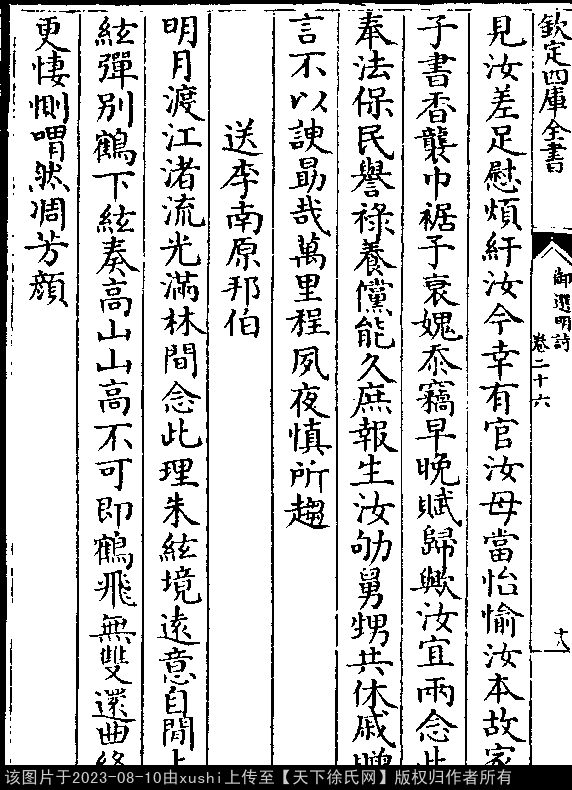 欽定四庫全書
御選明詩
卷二十六
十八
見汝差足慰煩紆汝今幸有官汝母當怡愉汝本故家
子書香襲巾裾予衰媿忝竊早晚賦歸歟汝宜兩念此
奉法保民譽祿養儻能久庶報生汝劬舅甥共休戚贈
言不以諛勗哉萬里程夙夜慎所趨
送李南原邦伯
明月渡江渚流光滿林間念此理朱絃境遠意自閒上
絃彈別鶴下絃奏高山山高不可即鶴飛無雙還曲終
更悽惻喟然凋芳顏
该图片于2023-08-10由xushi上传至【天下徐氏网】版权归作者所有